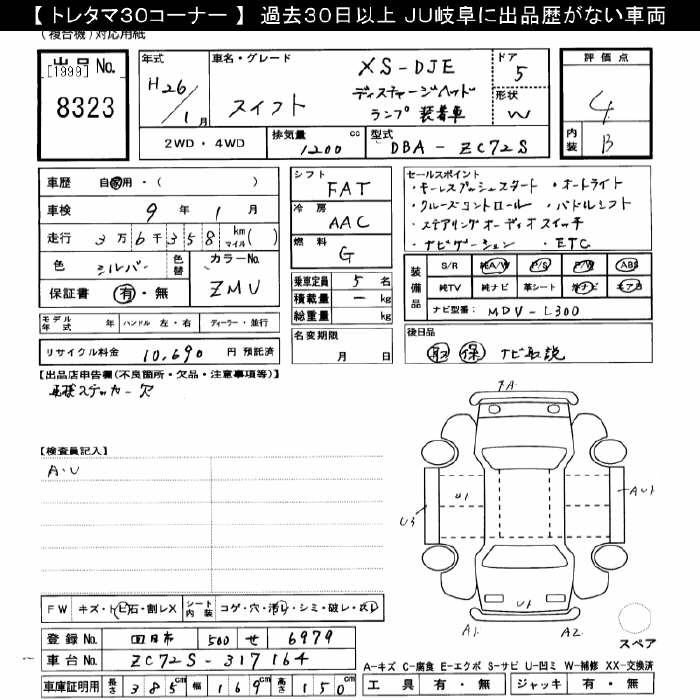 【 トレタマ30コーナー 】 過去30日以上 JU岐阜に出品歴がない車両
(複合機)対応用紙
出品No.
[1999]
8323
年式
H26/1月
車名・グレード
XS-DJE
スイフト
ディスチャージヘッド
ランプ装着車
ドア
5
形状
W
2WD・4WD
排気量
1200 cc
型式
DBA-ZC72S
評価点
4
内装
B
車歴 自家用・( )
車検 9年1月
走行 3万6千358 km マイル( )
色 シルバー 色替 カラーNo. ZMU
保証書 有・無
モデル年式 年 ハンドル 左・右 ディーラー・並行
リサイクル料金 10,690 円 預託済
シフト
FAT
冷房
AAC
燃料
G
乗車定員 5 名
積載量 ー kg
総重量 kg
名変期限
月 日
セールスポイント
・キーレスプッシュスタート ・オートライト
・クルーズコントロール ・パドルシフト
・ステアリングオーディオスイッチ
・ナビゲーション ・ETC
装備品
S/R 純A/W P/S P/W ABS
純TV 純ナビ 革シート 社ナビ エアB
ナビ型番: MDV-L300
後日品
取 保 ナビ取説
【出品店申告欄(不良箇所・欠品・注意事項等)】
車検ステッカー欠
【検査員記入】
A・U
FA
U1
AU1
U3
U1
A1
A2
スペア
FW キズ・トビ石・割レX シート内装 コゲ・穴・汚レ・シミ・破レ・スレ
登録No. 四日市 500 せ 6979
車台No. ZC72S-317164
車庫証明用 長さ 385cm 幅 169cm 高さ 150cm
A-キズ C-腐食 E-エクボ S-サビ U-凹ミ W-補修 XX-交換済
工具 有・無 ジャッキ 有・無